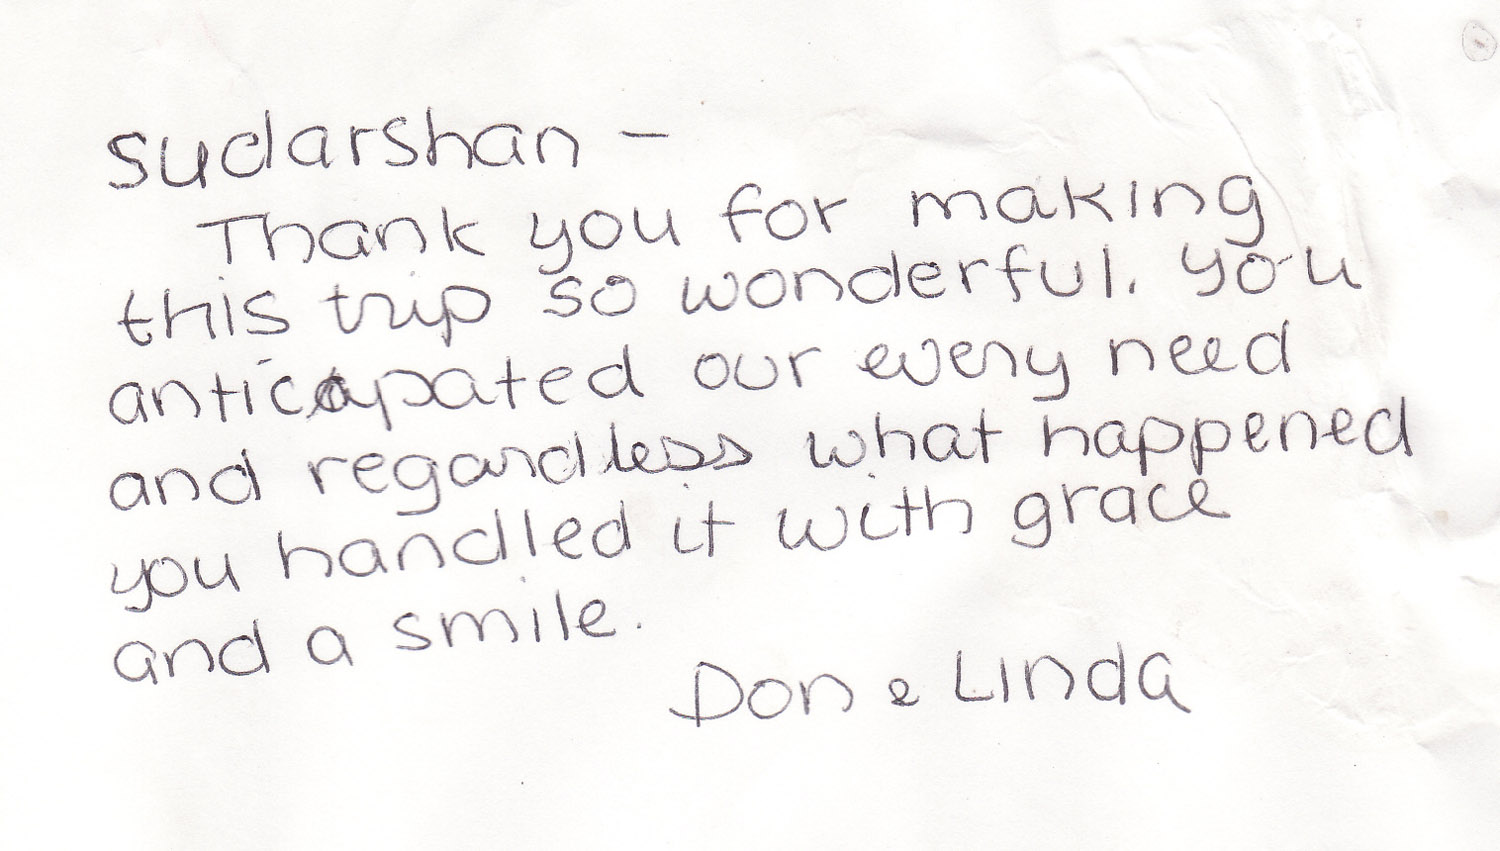 Sudarshan –
Thank you for making
this trip so wonderful. You
anticapated our every need
and regardless what happened
you handled it with grace
and a smile.
Don & Linda